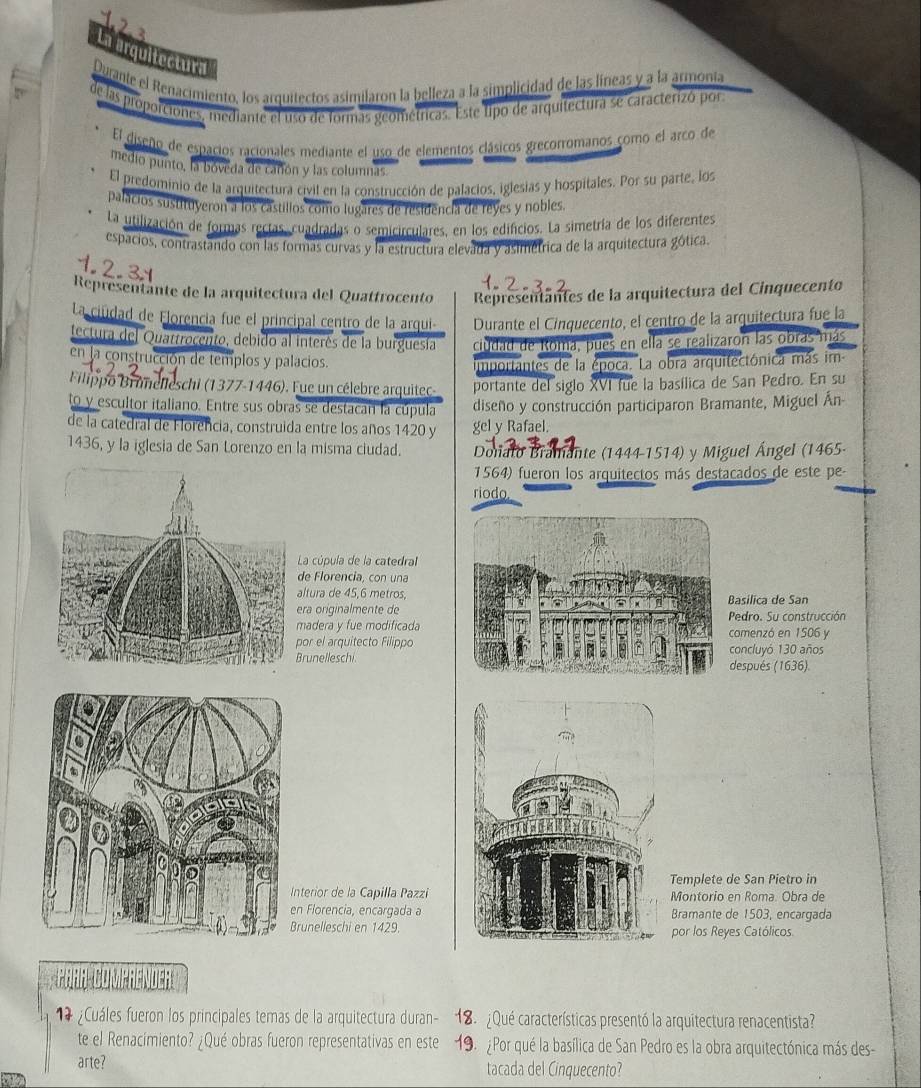 1.2.3
La arquitectura
Durante el Renacimiento, los arquitectos asimilaron la belleza a la simplicidad de las líneas y a la armonía
de las proporciones, mediante el uso de formas geométricas. Este tipo de arquitectura se caracterizó por:
• El diseño de espacios racionales mediante el uso de elementos clásicos grecorromanos como el arco de
medio punto, la bóveda de cañón y las columnas.
• El predominio de la arquitectura civil en la construcción de palacios, iglesias y hospitales. Por su parte, los
palacios sustituyeron a los castillos como lugares de residencia de reyes y nobles.
• La utilización de formas rectas, cuadradas o semicirculares, en los edificios. La simetría de los diferentes
espacios, contrastando con las formas curvas y la estructura elevada y asimétrica de la arquitectura gótica.
1.2.3.1
Representante de la arquitectura del Quattrocento
La ciudad de Florencia fue el principal centro de la arqui-
tectura del Quattrocento, debido al interés de la burguesía
en la construcción de templos y palacios.
Filippo Brunelleschi (1377-1446). Fue un célebre arquitec-
to y escultor italiano. Entre sus obras se destacan la cúpula
de la catedral de Florencia, construida entre los años 1420 y
1436, y la iglesia de San Lorenzo en la misma ciudad.
La cúpula de la catedral
de Florencia, con una
altura de 45,6 metros,
era originalmente de
madera y fue modificada
por el arquitecto Filippo
Brunelleschi.
Interior de la Capilla Pazzi
en Florencia, encargada a
Brunelleschi en 1429.
1.2.3.2
Representantes de la arquitectura del Cinquecento
Durante el Cinquecento, el centro de la arquitectura fue la
ciudad de Roma, pues en ella se realizaron las obras más
importantes de la época. La obra arquitectónica más im-
portante del siglo XVI fue la basílica de San Pedro. En su
diseño y construcción participaron Bramante, Miguel Án-
gel y Rafael.
Donato Bramante (1444-1514) y Miguel Ángel (1465-
1564) fueron los arquitectos más destacados de este pe-
riodo.
Basílica de San
Pedro. Su construcción
comenzó en 1506 y
concluyó 130 años
después (1636).
Templete de San Pietro in
Montorio en Roma. Obra de
Bramante de 1503, encargada
por los Reyes Católicos.
PARA COMPRENDER
17 ¿Cuáles fueron los principales temas de la arquitectura duran-
te el Renacimiento? ¿Qué obras fueron representativas en este
arte?
18. ¿Qué características presentó la arquitectura renacentista?
19. ¿Por qué la basílica de San Pedro es la obra arquitectónica más des-
tacada del Cinquecento?